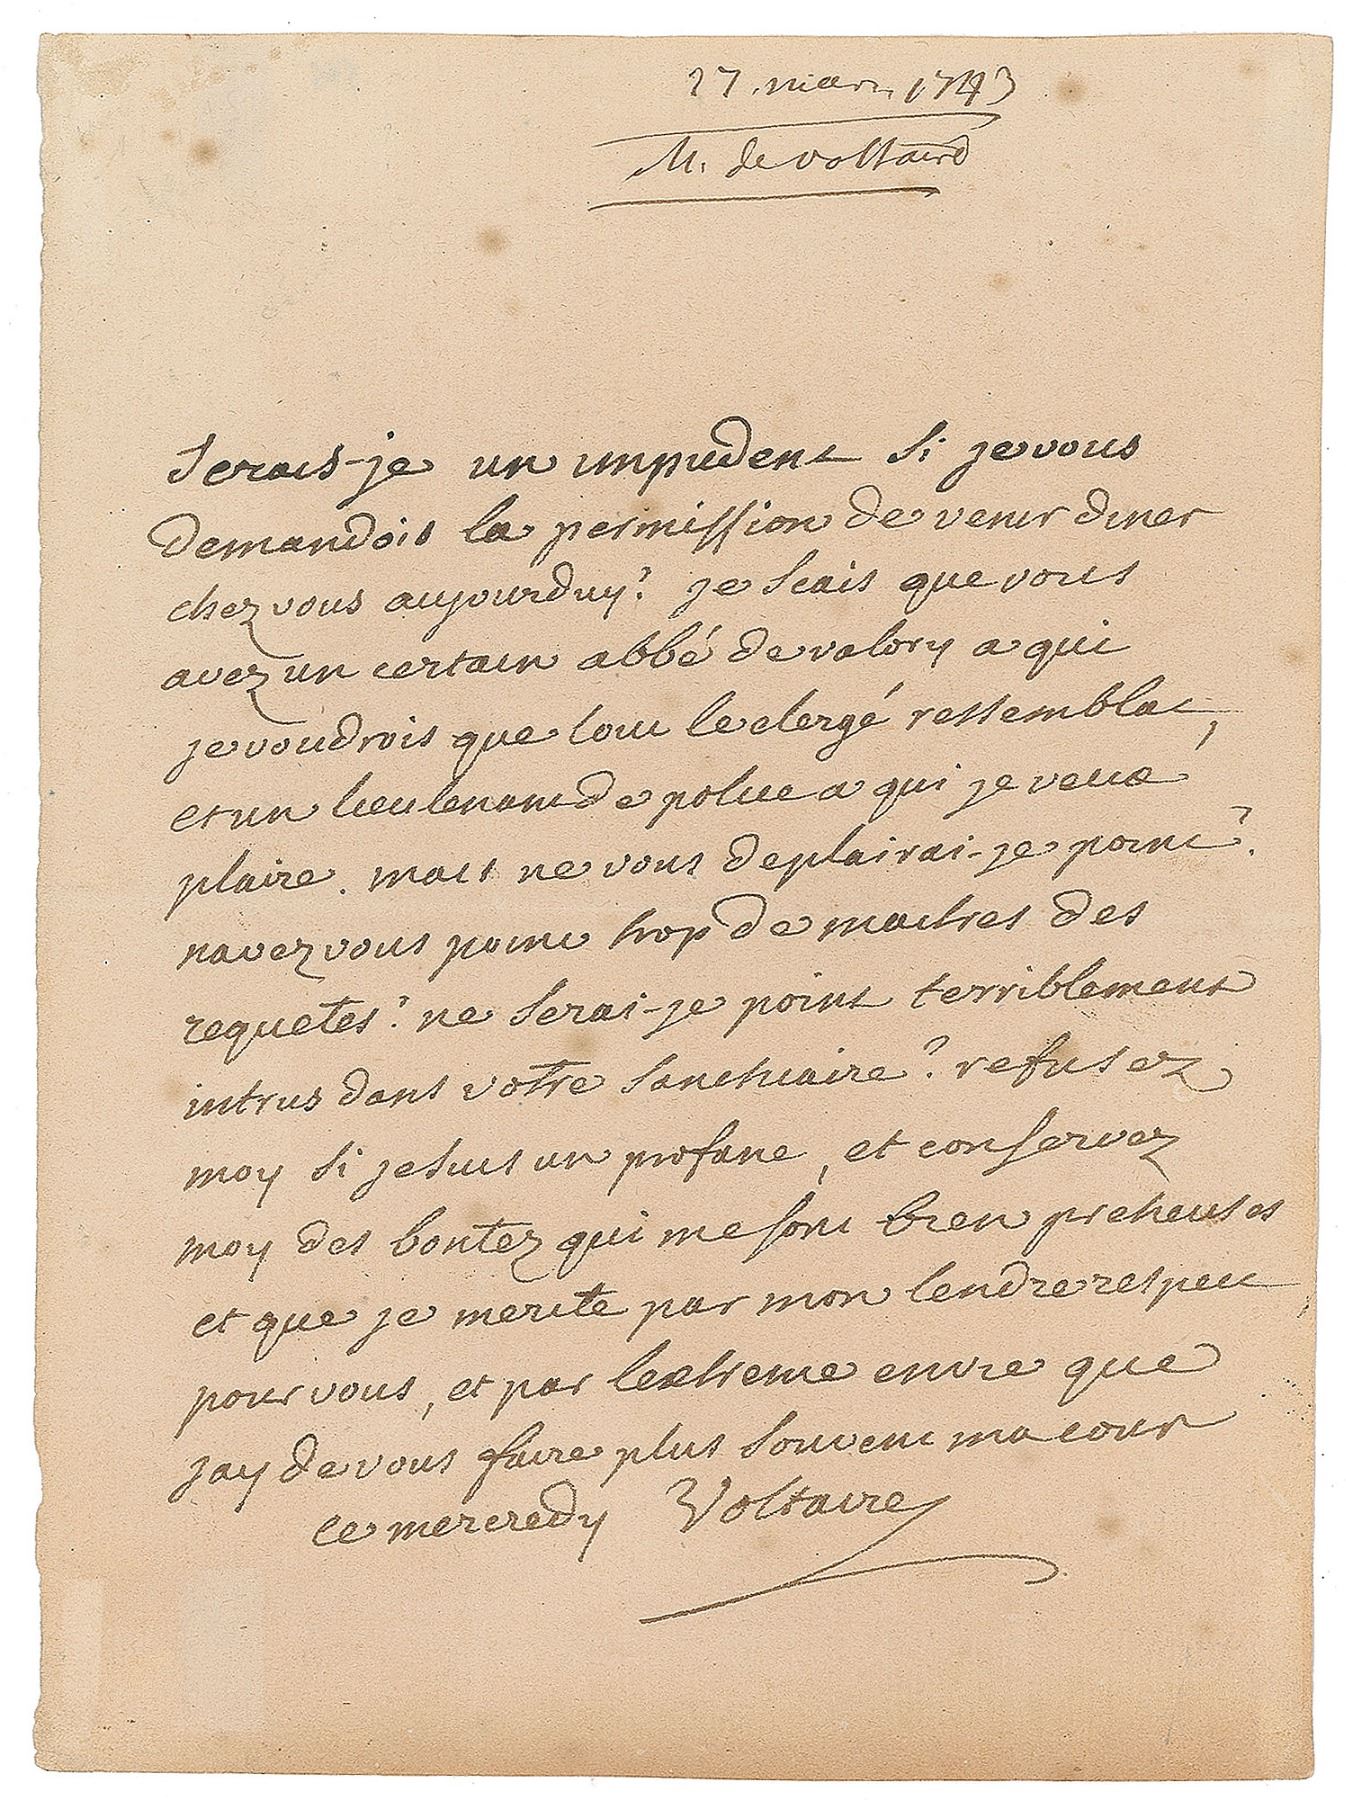 27. mars 1743
M. de voltaire
Serais-je un impudent si je vous
demandois la permission de venir diner
chez vous aujourduy? je scais que vous
avez un certain abbé de valory a qui
je voudrois que tout le clergé ressemblat,
et un lieutenant de police a qui je veux
plaire. mais ne vous deplairai-je point?
navez vous point trop de maitres des
requetes? ne serai-je point terriblement
intrus dans votre sanctuaire? refusez
moy si je suis un profane, et conservez
moy des bontez qui me sont bien pretieuses
et que je merite par mon tendre respect
pour vous, et par lextreme envie que
jay de vous faire plus souvent ma cour
ce mercredy Voltaire